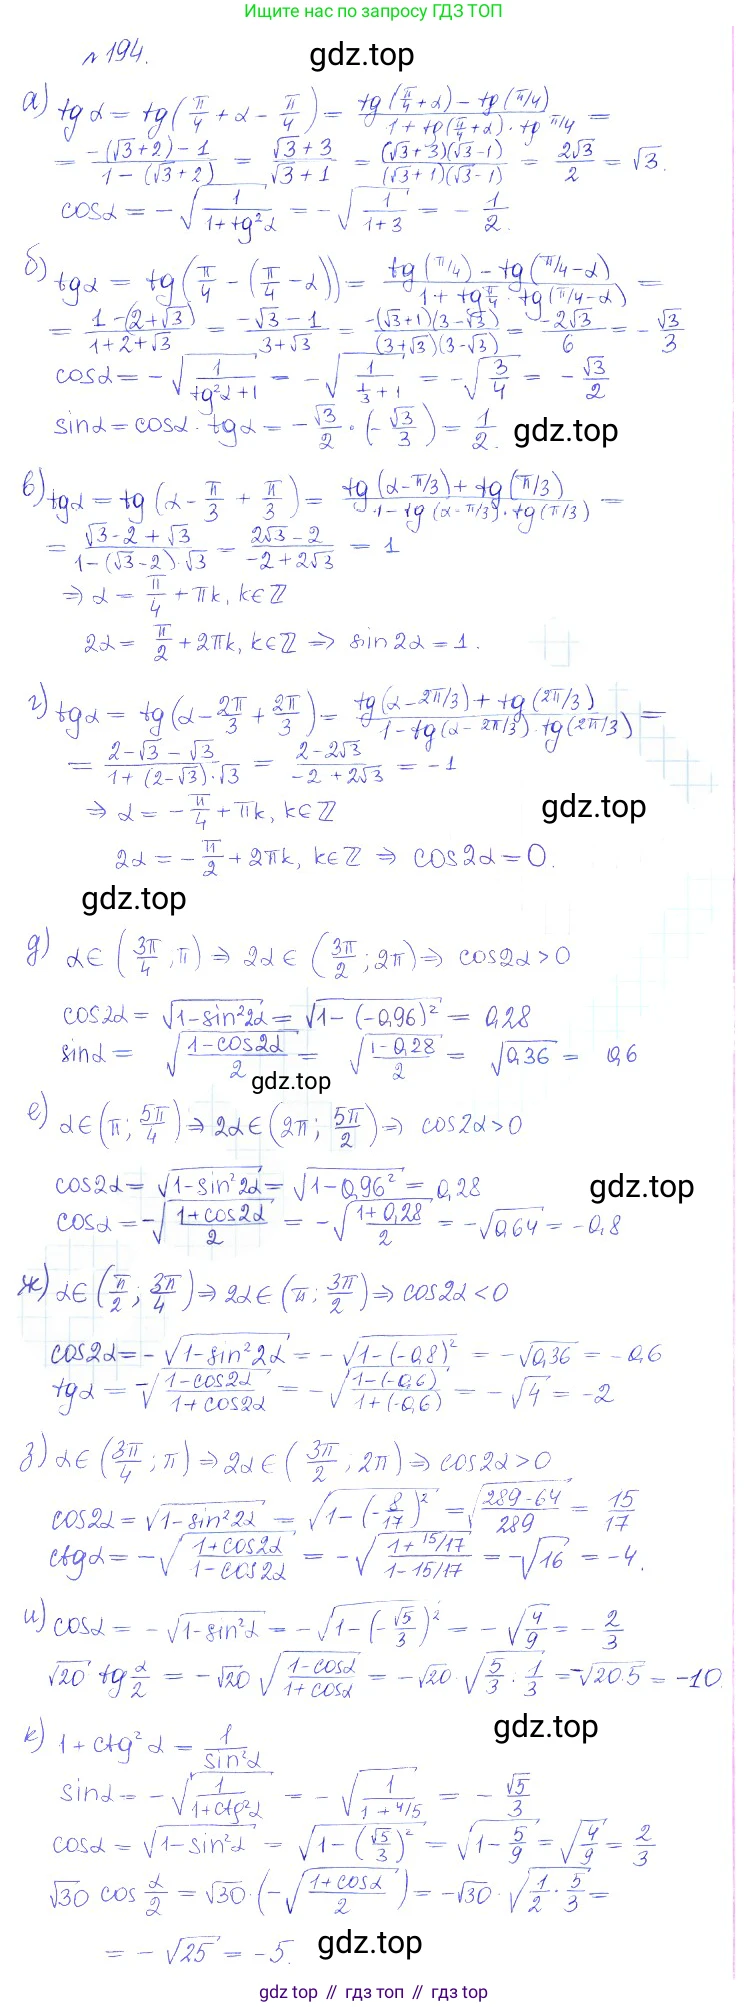 Ищите нас по запросу ГДЗ ТОП
№194.
gdz.top
а) tg α = tg(π/4 + α − π/4) = (tg(π/4 + α) − tg(π/4))/(1 + tg(π/4 + α)·tg π/4) =
= (−(√3+2)−1)/(1−(√3+2)) = (√3+3)/(√3+1) = ((√3+3)(√3−1))/((√3+1)(√3−1)) = 2√3/2 = √3.
cosα = −√(1/(1+tg²α)) = −√(1/(1+3)) = −1/2.
б) tgα = tg(π/4 − (π/4 − α)) = (tg(π/4) − tg(π/4−α))/(1 + tg π/4 · tg(π/4−α)) =
= (1−(2+√3))/(1+2+√3) = (−√3−1)/(3+√3) = (−(√3+1)(3−√3))/((3+√3)(3−√3)) = −2√3/6 = −√3/3
cosα = −√(1/(tg²α+1)) = −√(1/(1/3+1)) = −√(3/4) = −√3/2
sinα = cosα · tgα = −√3/2 · (−√3/3) = 1/2.
gdz.top
в) tgα = tg(α − π/3 + π/3) = (tg(α−π/3) + tg(π/3))/(1−tg(α−π/3)·tg(π/3)) =
= (√3−2+√3)/(1−(√3−2)·√3) = (2√3−2)/(−2+2√3) = 1
⇒ α = π/4 + πk, k∈ℤ
2α = π/2 + 2πk, k∈ℤ ⇒ sin2α = 1.
г) tgα = tg(α − 2π/3 + 2π/3) = (tg(α−2π/3) + tg(2π/3))/(1−tg(α−2π/3)·tg(2π/3)) =
= (2−√3−√3)/(1+(2−√3)·√3) = (2−2√3)/(−2+2√3) = −1
⇒ α = −π/4 + πk, k∈ℤ
gdz.top
2α = −π/2 + 2πk, k∈ℤ ⇒ cos2α = 0.
gdz.top
д) α∈(3π/4; π) ⇒ 2α∈(3π/2; 2π) ⇒ cos2α>0
cos2α = √(1−sin²2α) = √(1−(−0,96)²) = 0,28
sinα = √((1−cos2α)/2) = √((1−0,28)/2) = √0,36 = 0,6
gdz.top
е) α∈(π; 5π/4) ⇒ 2α∈(2π; 5π/2) ⇒ cos2α>0
cos2α = √(1−sin²2α) = √(1−0,96²) = 0,28
gdz.top
cosα = −√((1+cos2α)/2) = −√((1+0,28)/2) = −√0,64 = −0,8
ж) α∈(π/2; 3π/4) ⇒ 2α∈(π; 3π/2) ⇒ cos2α<0
cos2α = −√(1−sin²2α) = −√(1−(−0,8)²) = −√0,36 = −0,6
tgα = −√((1−cos2α)/(1+cos2α)) = −√((1−(−0,6))/(1+(−0,6))) = −√4 = −2
з) α∈(3π/4; π) ⇒ 2α∈(3π/2; 2π) ⇒ cos2α>0
cos2α = √(1−sin²2α) = √(1−(−8/17)²) = √((289−64)/289) = 15/17
ctgα = −√((1+cos2α)/(1−cos2α)) = −√((1+15/17)/(1−15/17)) = −√16 = −4.
и) cosα = −√(1−sin²α) = −√(1−(−√5/3)²) = −√(4/9) = −2/3
√20 tg α/2 = −√20 √((1−cosα)/(1+cosα)) = −√20 · √(5/3 : 1/3) = −√(20·5) = −10.
к) 1+ctg²α = 1/sin²α
gdz.top
sinα = −√(1/(1+ctg²α)) = −√(1/(1+4/5)) = −√5/3
cosα = √(1−sin²α) = √(1−(√5/3)²) = √(1−5/9) = √(4/9) = 2/3
√30 cos α/2 = √30 · (−√((1+cosα)/2)) = −√30 · √(1/2 · 5/3) =
= −√25 = −5.
gdz.top
gdz top // гдз топ // gdz.top